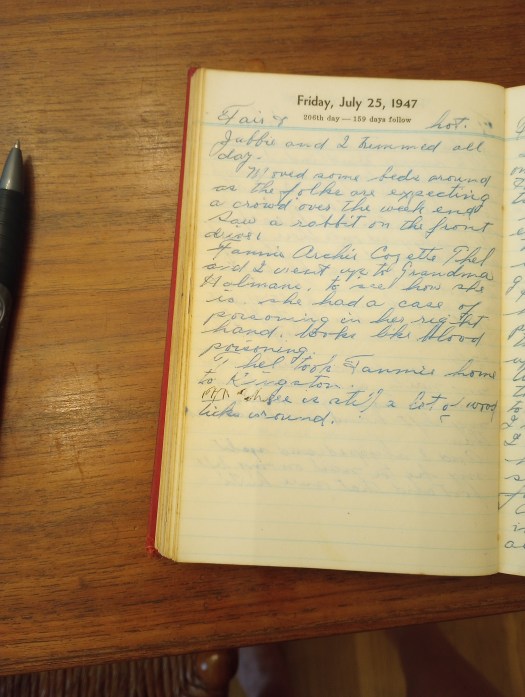 Friday, July 25, 1947
206th day—159 days follow
Fair & hot.
Jubbie and I trimmed all
day.
Moved some beds around
as the folks are expecting
a crowd over the week end
Saw a rabbit on the front
drive.
Fannie Archie Cozette Thel
and I went up to Grandma
Holmans. to see how she
is. she had a case of
poisoning in her right
hand. looks like blood
poisoning.
Thel took Fannie home
to Kingston.
is a lot of wood
ticks around.